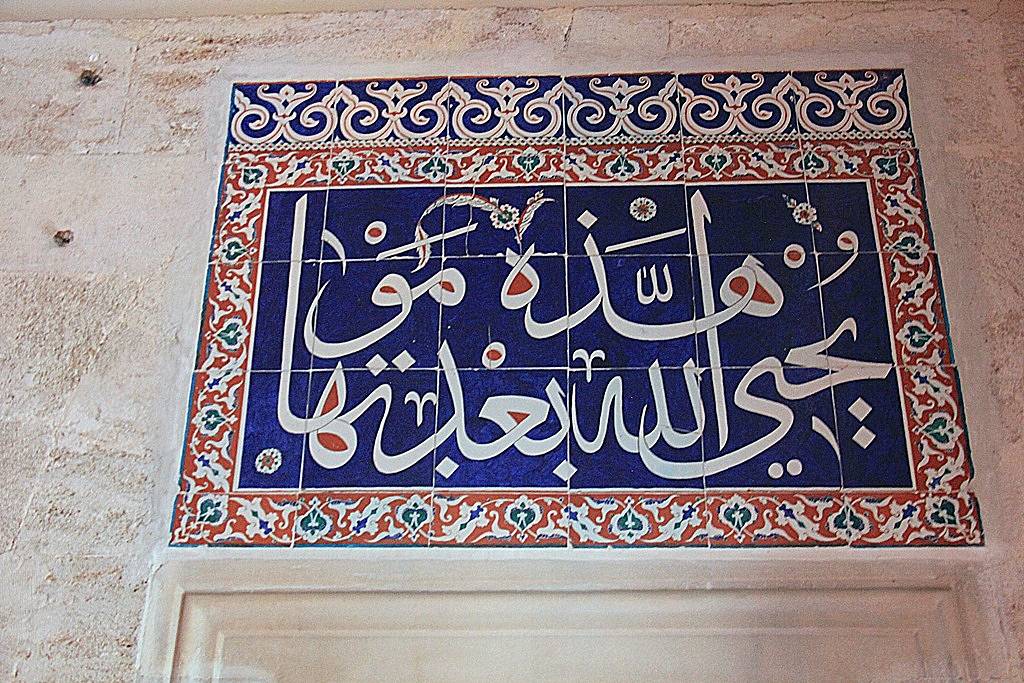 يحي هذه الله بعد موتها